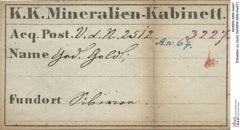 K.K. Mineralien-Kabinett.
Acq. Post. V.d.N. 2512 An. 67. 3227
Name Ged. Gold;
Fundort Sibirien.